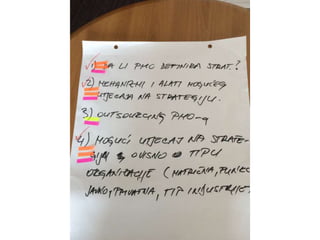 1) DA LI PMO DEFINIRA STRAT.?
2) MEHANIZMI I ALATI MOGUĆEG
UTJECAJA NA STRATEGIJU.
3) OUTSOURCING PMO-a
4) MOGUĆI UTJECAJ NA STRATE-
GIJU OVISNO O TIPU
ORGANIZACIJE (MATRIČNA, FUNKC
JAVNO, PRIVATNA, TIP INDUSTRIJE)